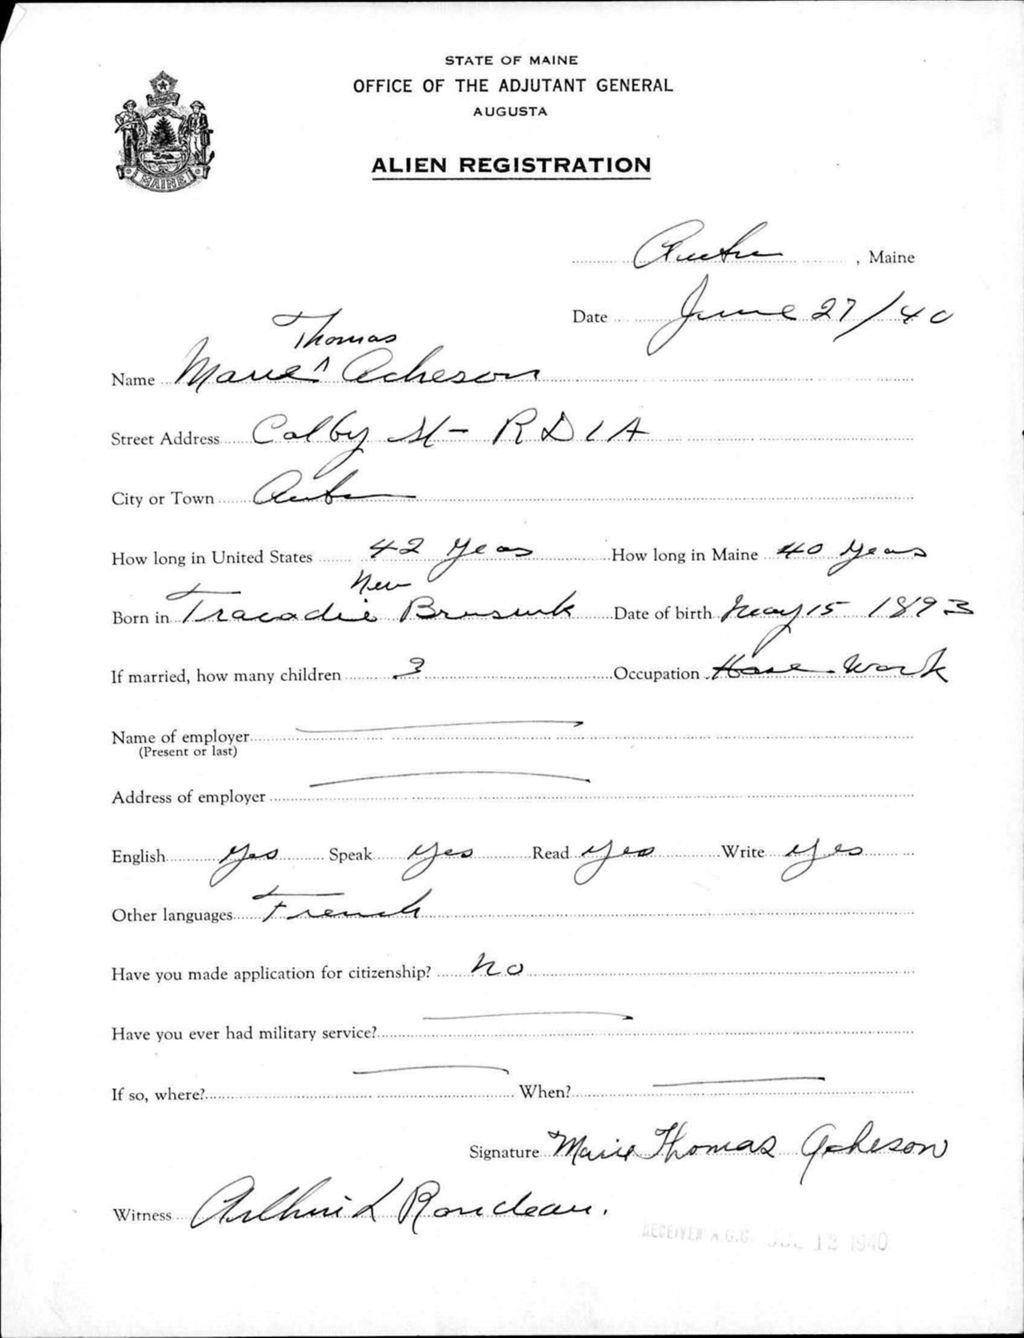 STATE OF MAINE
OFFICE OF THE ADJUTANT GENERAL
AUGUSTA
MAINE
ALIEN REGISTRATION
Auburn, Maine
Date June 27/40
Thomas
Name Marie ^ Acheson
Street Address Colby St - RD 1A
City or Town Auburn
How long in United States 42 Years How long in Maine 40 Years
New
Born in Tracadie Brunswik Date of birth May 15 1893
If married, how many children 3 Occupation House Work
Name of employer
(Present or last)
Address of employer
English Yes Speak Yes Read Yes Write Yes
Other languages French
Have you made application for citizenship? No
Have you ever had military service?
If so, where? When?
Signature Marie Thomas Acheson
Witness Arthur L Rondeau.
RECEIVED A.G.O. JUL 12 1940